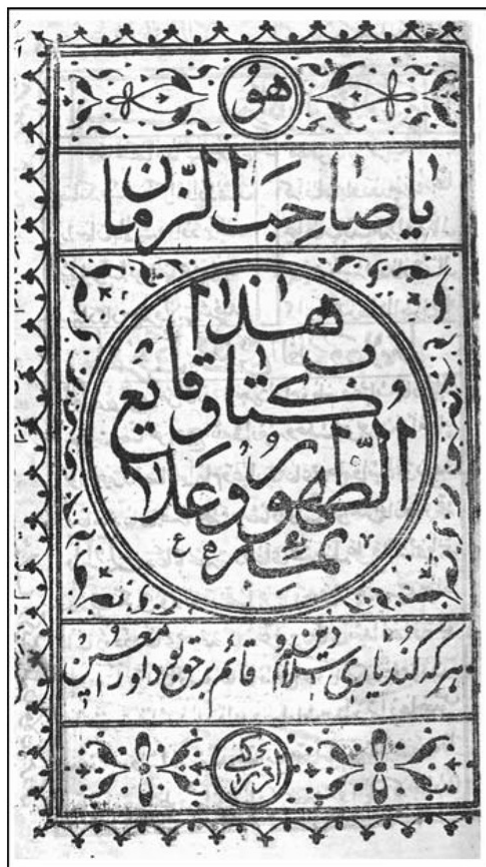 هُو
یا صٰاحِبَ الزَّمان
هٰذا
کتٰاب وقٰایع
الظُّهور وعَلا
ئمه
هر که کند یاری اسلام و دین قائم بر حق بود او را معین
ادرکنی